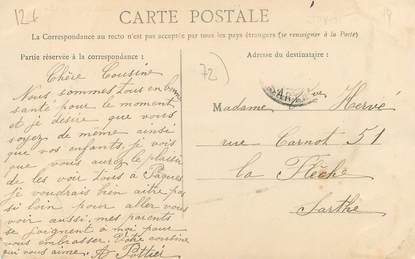 121
CARTE POSTALE
La Correspondance au recto n'est pas acceptée par tous les pays étrangers (se renseigner à la Poste)
Partie réservée à la correspondance :
Adresse du destinataire :
72)
Chère Cousine
Nous sommes tous en bonne
santé pour le moment
et je désire que vous
soyez de même ainsi
que vos enfants, je vois
que vous aurez le plaisir
de les voir tous à Pâques
Je voudrais bien être pas
si loin pour aller vous
voir aussi, mes parents
se joignent à moi pour
vous embrasser. Votre cousine
qui vous aime. A Pottier
Madame Vve Hervé
rue Carnot 51
La Flèche
Sarthe